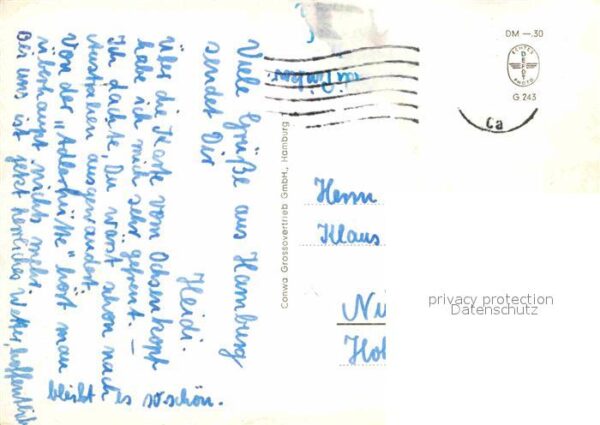 Viele Grüße aus Hamburg
sendet Dir
Heidi.
Über die Karte vom Ochsenkopf
habe ich mich sehr gefreut. –
Ich dachte, Du wärst schon nach
Australien ausgewandert.
Von der „Adlerhütte" hört man
überhaupt nichts mehr.
Bei uns ist jetzt herrliches Wetter, hoffentlich
bleibt es so schön.
Conwa Grossovertrieb GmbH., Hamburg
DM –.30
ECHTES
FOTO
G 243
Ca
Herrn
Klaus
Nü
Ho
privacy protection
Datenschutz